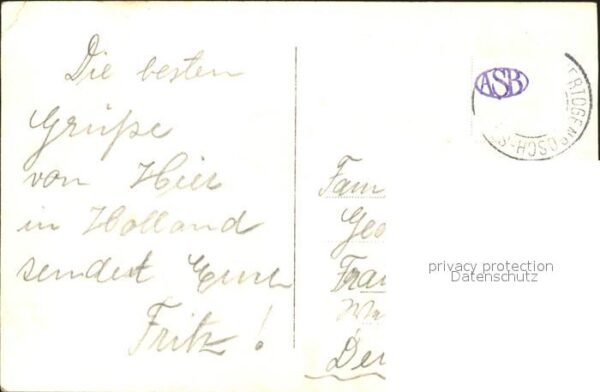 Die besten
Grüße
von Hier
in Holland
sendet Euch
Fritz!
ASB
ERTOGENBOSCH-S
Fam
Geo
Frau
Deu
privacy protection
Datenschutz